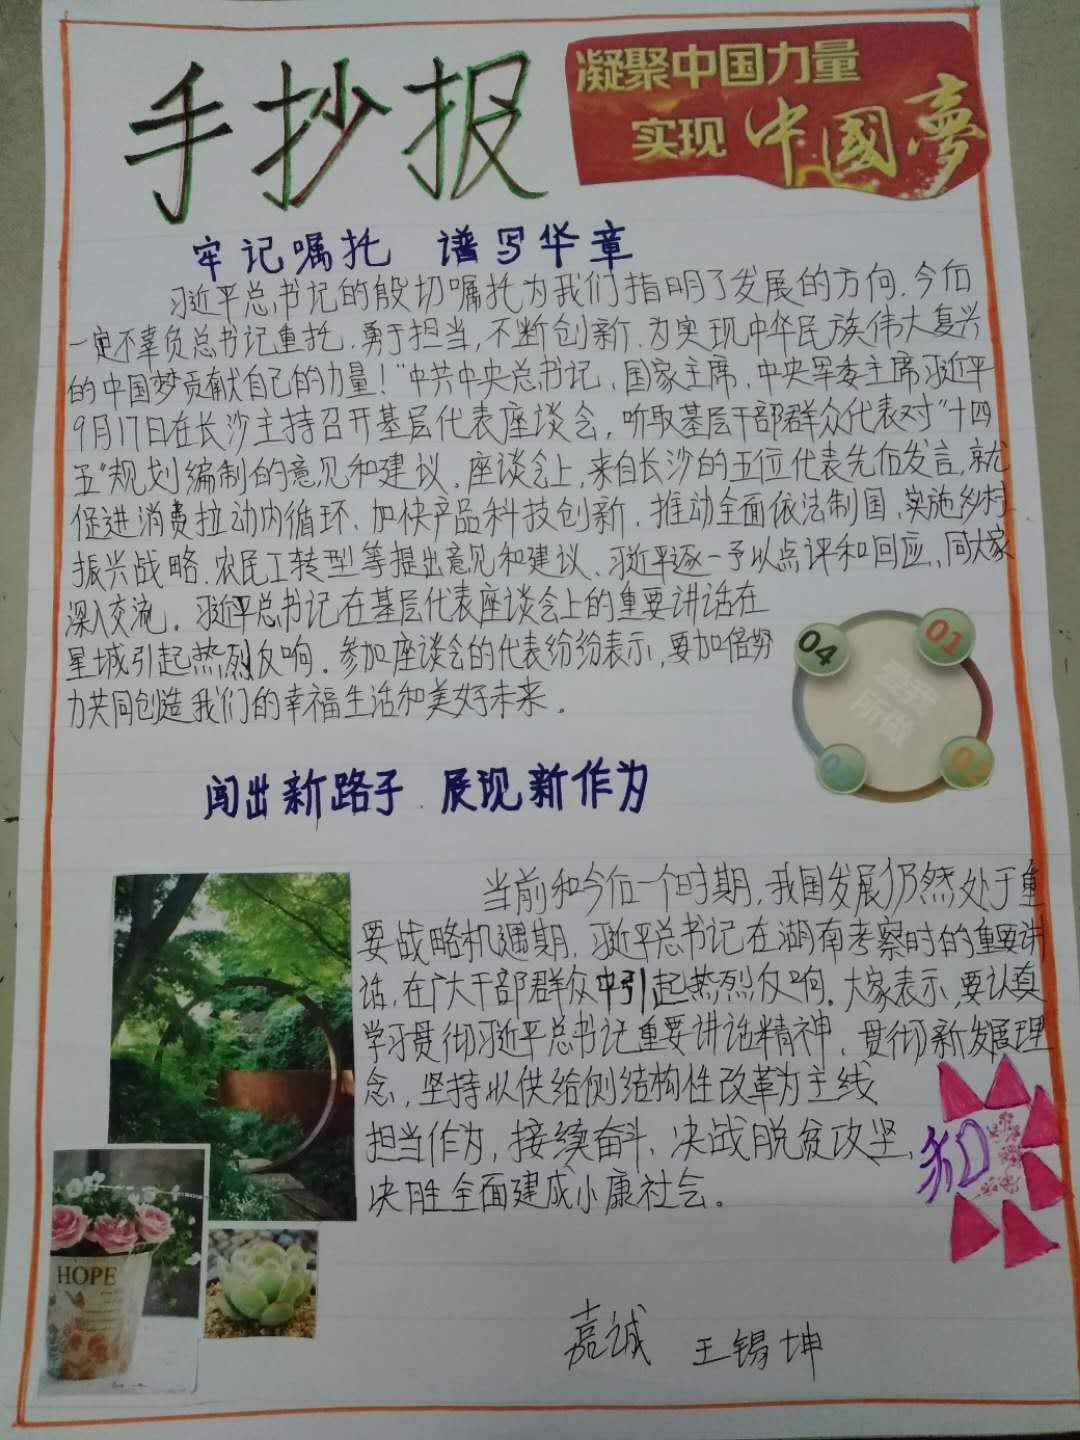 手抄报
凝聚中国力量
实现中國夢
牢记嘱托 谱写华章
习近平总书记的殷切嘱托为我们指明了发展的方向.今后
一定不辜负总书记重托,勇于担当,不断创新.为实现中华民族伟大复兴
的中国梦贡献自己的力量!"中共中央总书记、国家主席、中央军委主席习近平
9月17日在长沙主持召开基层代表座谈会,听取基层干部群众代表对"十四
五"规划编制的意见和建议。座谈会上,来自长沙的五位代表先后发言,就
促进消费拉动内循环、加快产品科技创新、推动全面依法制国,实施乡村
振兴战略、农民工转型等提出意见和建议、习近平逐一予以点评和回应、同大家
深入交流。习近平总书记在基层代表座谈会上的重要讲话在
星城引起热烈反响。参加座谈会的代表纷纷表示,要加倍努
力共同创造我们的幸福生活和美好未来。
04
01
要我
所做
03
02
闯出新路子.展现新作为
当前和今后一个时期,我国发展仍然处于重
要战略机遇期,习近平总书记在湖南考察时的重要讲
话,在广大干部群众中引起热烈反响。大家表示,要认真
学习贯彻习近平总书记重要讲话精神,贯彻新发展理
念,坚持以供给侧结构性改革为主线
担当作为,接续奋斗、决战脱贫攻坚、
决胜全面建成小康社会。
和
HOPE
嘉诚 王锡坤